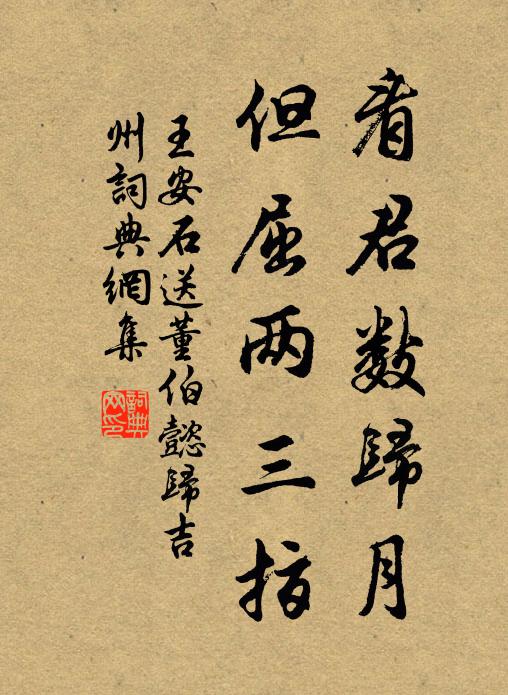 看君数歸月
但屈两三指
王安石送董伯懿歸吉
州詞典網集
詞典
网印